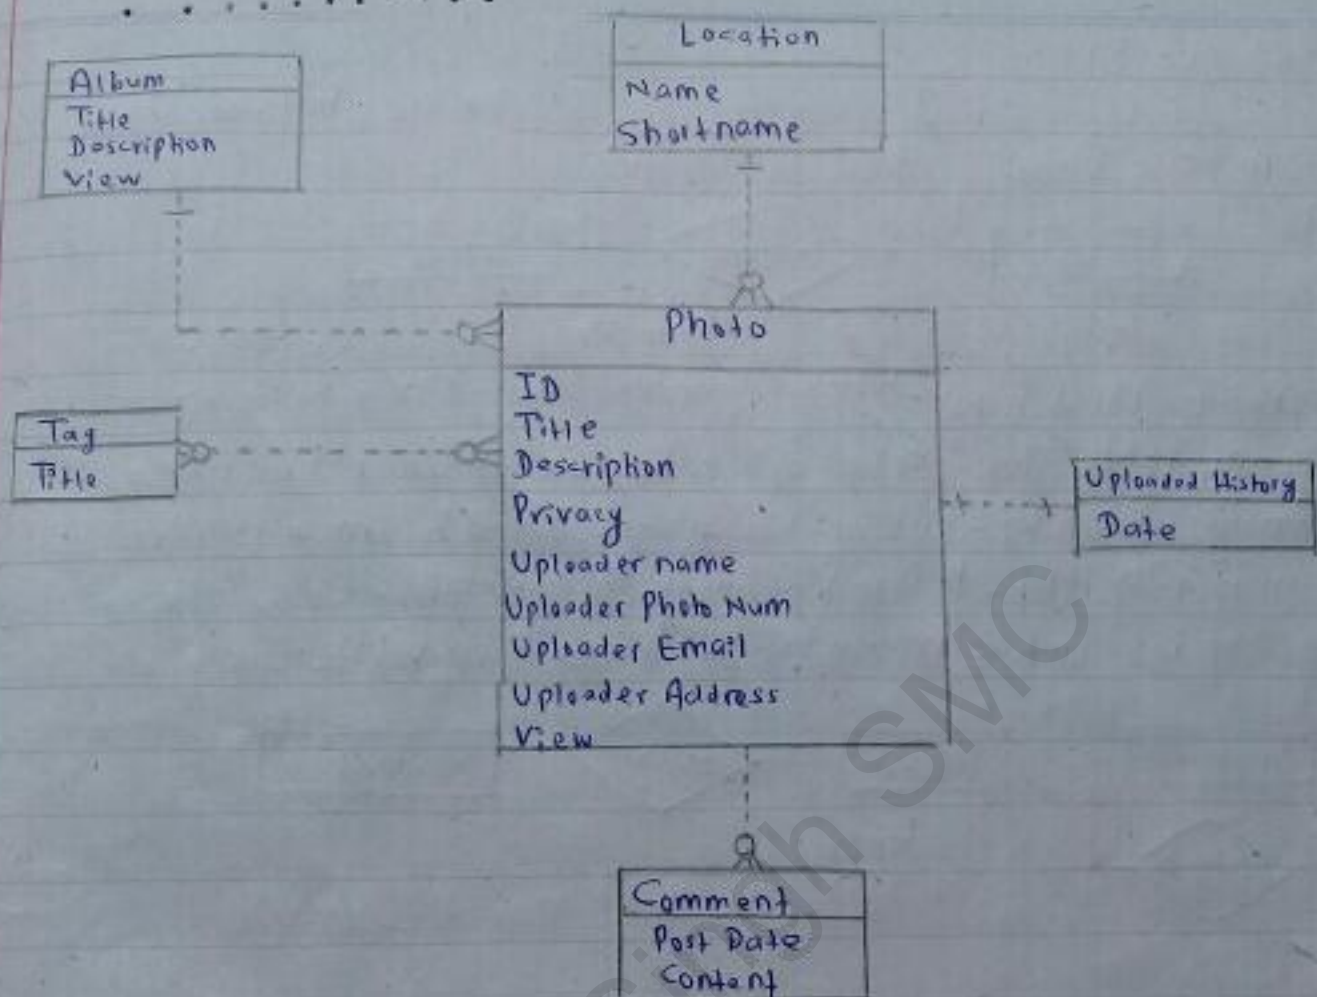 Album
Title
Description
View
Location
Name
Shortname
Photo
ID
Title
Description
Privacy
Uploader name
Uploader Photo Num
Uploader Email
Uploader Address
View
Tag
Title
Uploaded History
Date
Comment
Post Date
Content
SMC